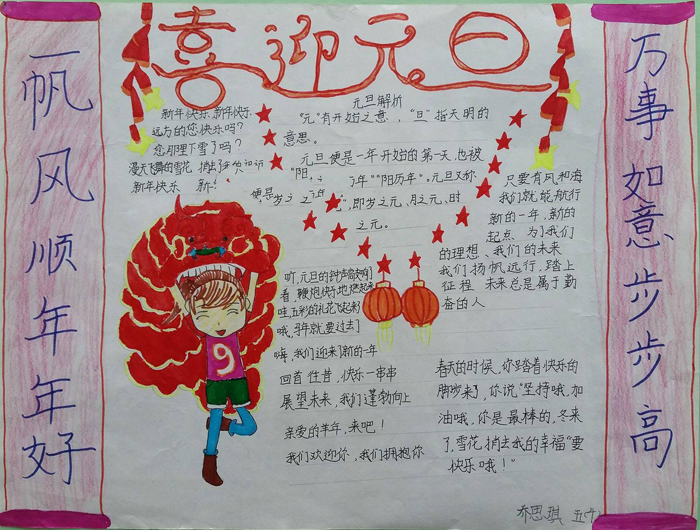 喜迎元旦
一帆风顺年年好
万事如意步步高
新年快乐、新年快乐、
远方的您快乐吗?
您那里下雪了吗?
漫天飞舞的雪花
新年快乐 新
元旦解析
"元"有开始之意,"旦"指天明的
意思。
元旦便是一年开始的第一天,也被
"阳 年""阳历年"。元旦又称
便是 ,即岁之元、月之元、时
之元。
只要有风和海
我们就能航行
新的一年,新的
起点 为了我们
的理想、我们的未来
我们扬帆远行,踏上
征程 未来总是属于勤
奋的人
吖,元旦的钟声
看,鞭炮快乐地燃起来
哇,五彩的礼花飞起来
哦,羊年就要过去
嗨,我们迎来了新的一年
回首往昔,快乐一串串
展望未来,我们蓬勃向上
亲爱的羊年,来吧!
我们欢迎你,我们拥抱你
春天的时候,你踏着快乐的
脚步来了,你说"坚持哦,加
油哦,你是最棒的,冬来
了,雪花捎去我的幸福"要
快乐哦!"
9
乔思琪 五